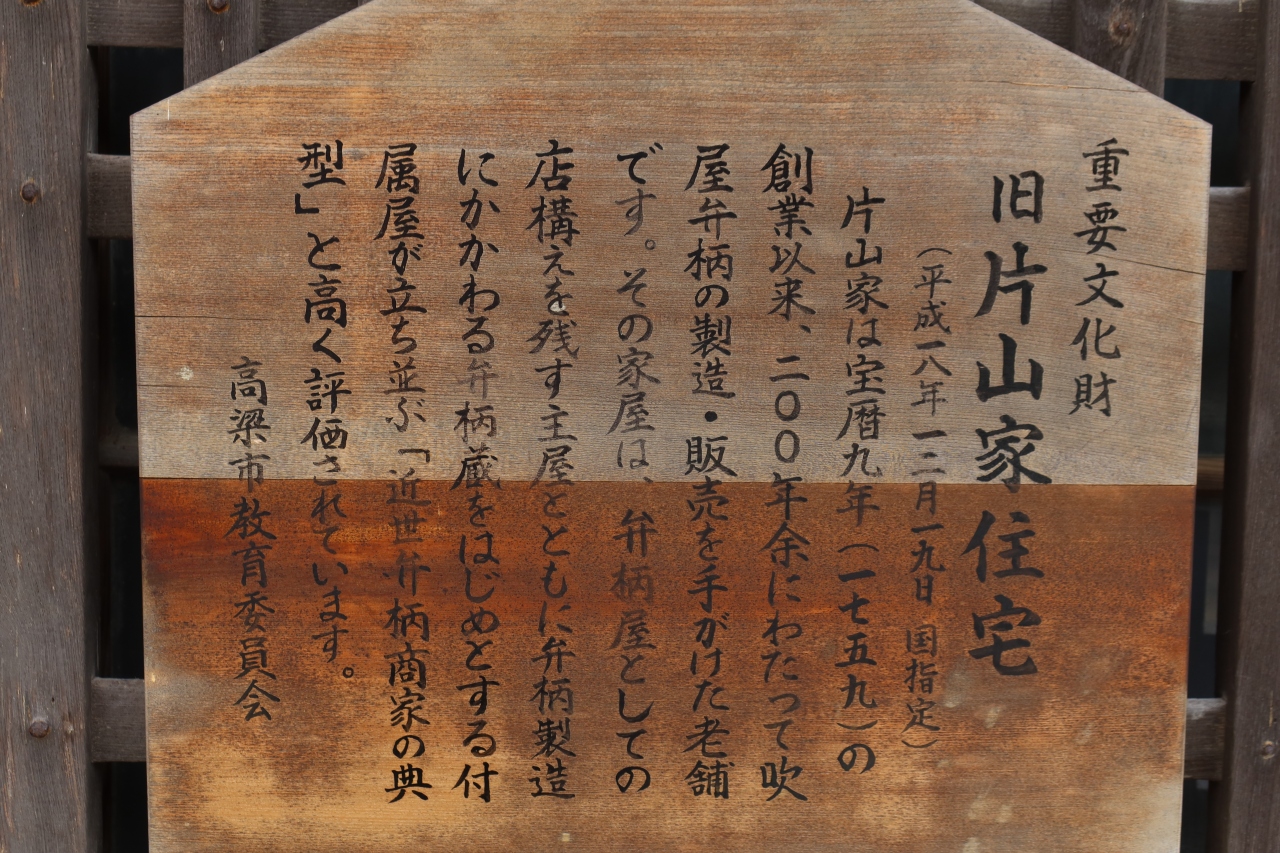 重要文化財
旧片山家住宅
（平成一八年一二月一九日 国指定）
片山家は宝暦九年（一七五九）の
創業以来、二〇〇年余にわたって吹
屋弁柄の製造・販売を手がけた老舗
です。その家屋は、弁柄屋としての
店構えを残す主屋とともに弁柄製造
にかかわる弁柄蔵をはじめとする付
属屋が立ち並ぶ「近世弁柄商家の典
型」と高く評価されています。
高梁市教育委員会